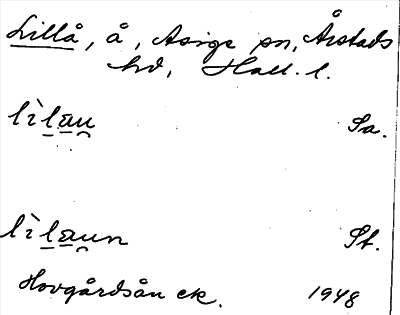 Lillå, å, Asige sn, Årstads
hd, Hall. l.
lìlau̯ Sa.
lìlau̯n St.
Hovgårdsån ek. 1948